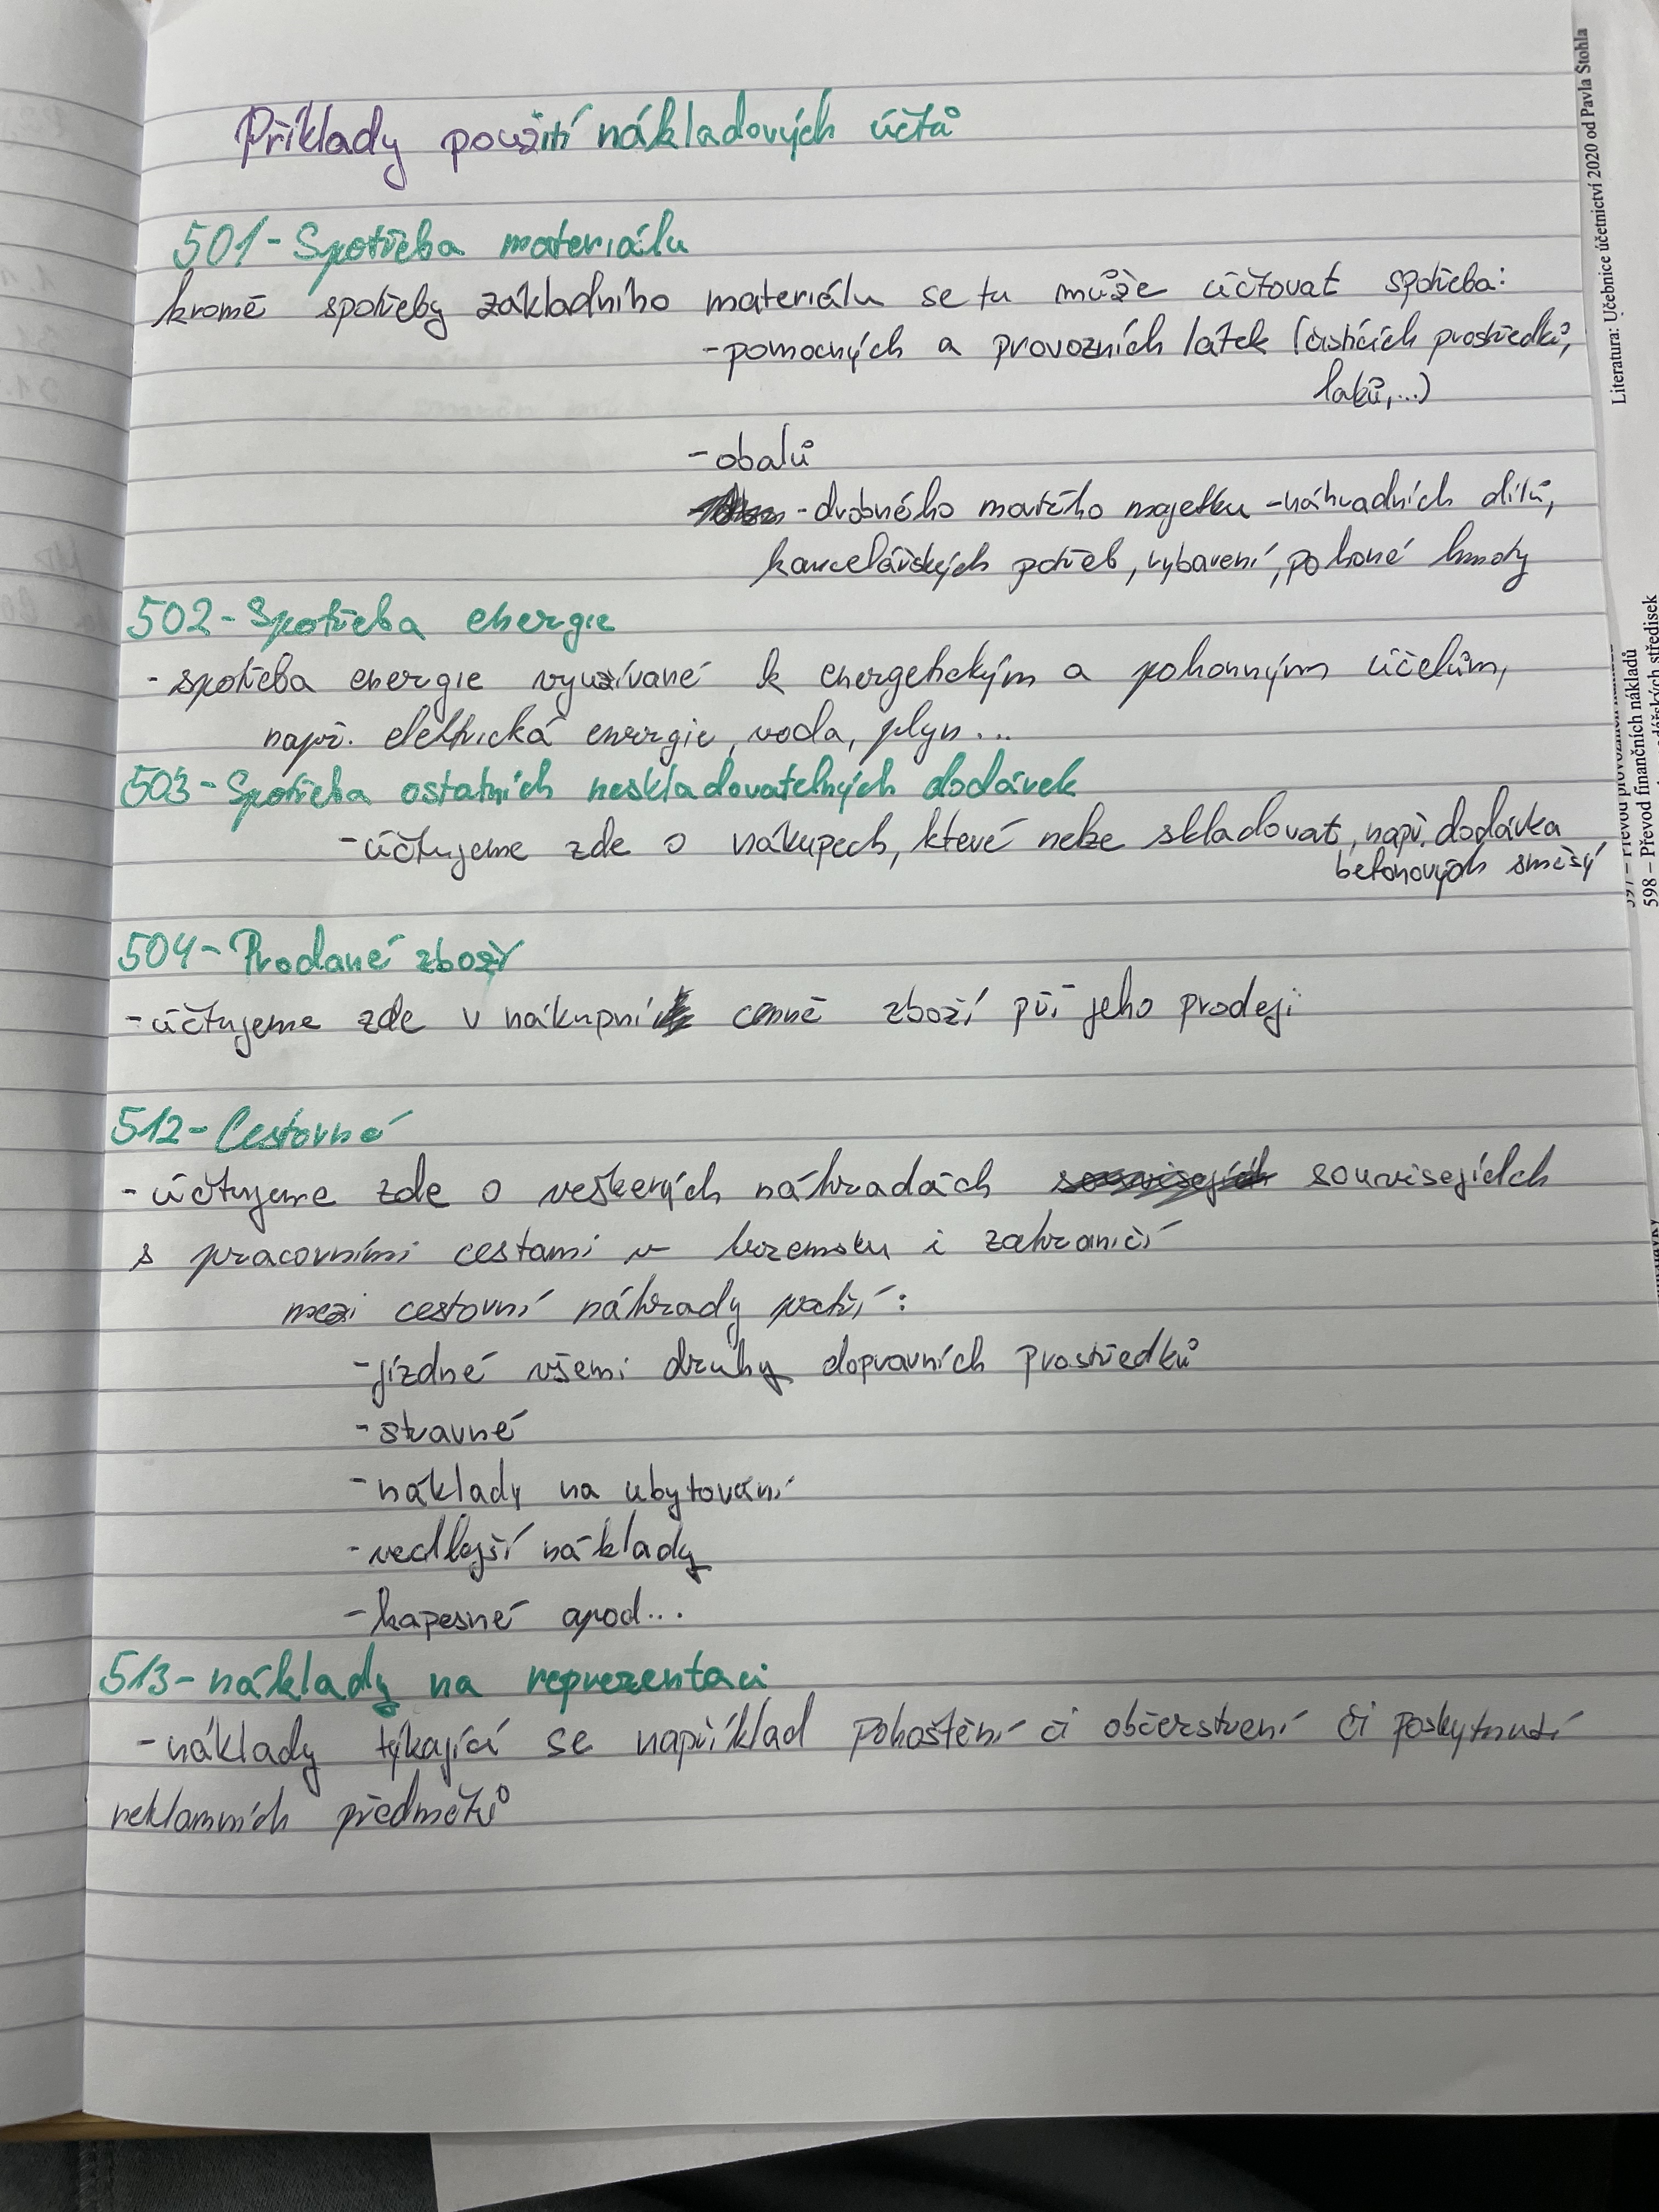 Příklady použití nákladových účtů
501 - Spotřeba materiálu
kromě spotřeby základního materiálu se tu může účtovat spotřeba:
- pomocných a provozních látek (čistících prostředků,
laků,...)
- obalů
- drobného movitého majetku - náhradních dílů,
kancelářských potřeb, vybavení, pohoné hmoty
502 - Spotřeba energie
- spotřeba energie využívané k energetickým a pohonným účelům,
např. elektrická energie, voda, plyn...
503 - Spotřeba ostatních neskladovatelných dodávek
- účtujeme zde o nákupech, které nelze skladovat, např. dodávka
betonových směsý
504 - Prodané zboží
- účtujeme zde v nákupní cenně zboží při jeho prodeji
512 - Cestovné
- účtujeme zde o veškerých náhradách souvisejících
s pracovními cestami v tuzemsku i zahraničí
mezi cestovní náhrady patří:
- jízdné všemi druhy dopravních prostředků
- stravné
- náklady na ubytování
- vedlejší náklady
- kapesné apod...
513 - náklady na reprezentaci
- náklady týkající se například pohoštění či občerstvení či poskytnutí
reklamních předmětů
Literatura: Učebnice účetnictví 2020 od Pavla Štohla
598 – Převod finančních nákladů